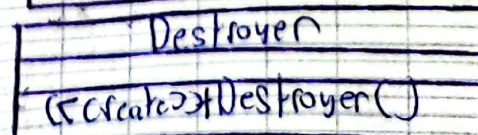 Destroyer
<<create>>+Destroyer()